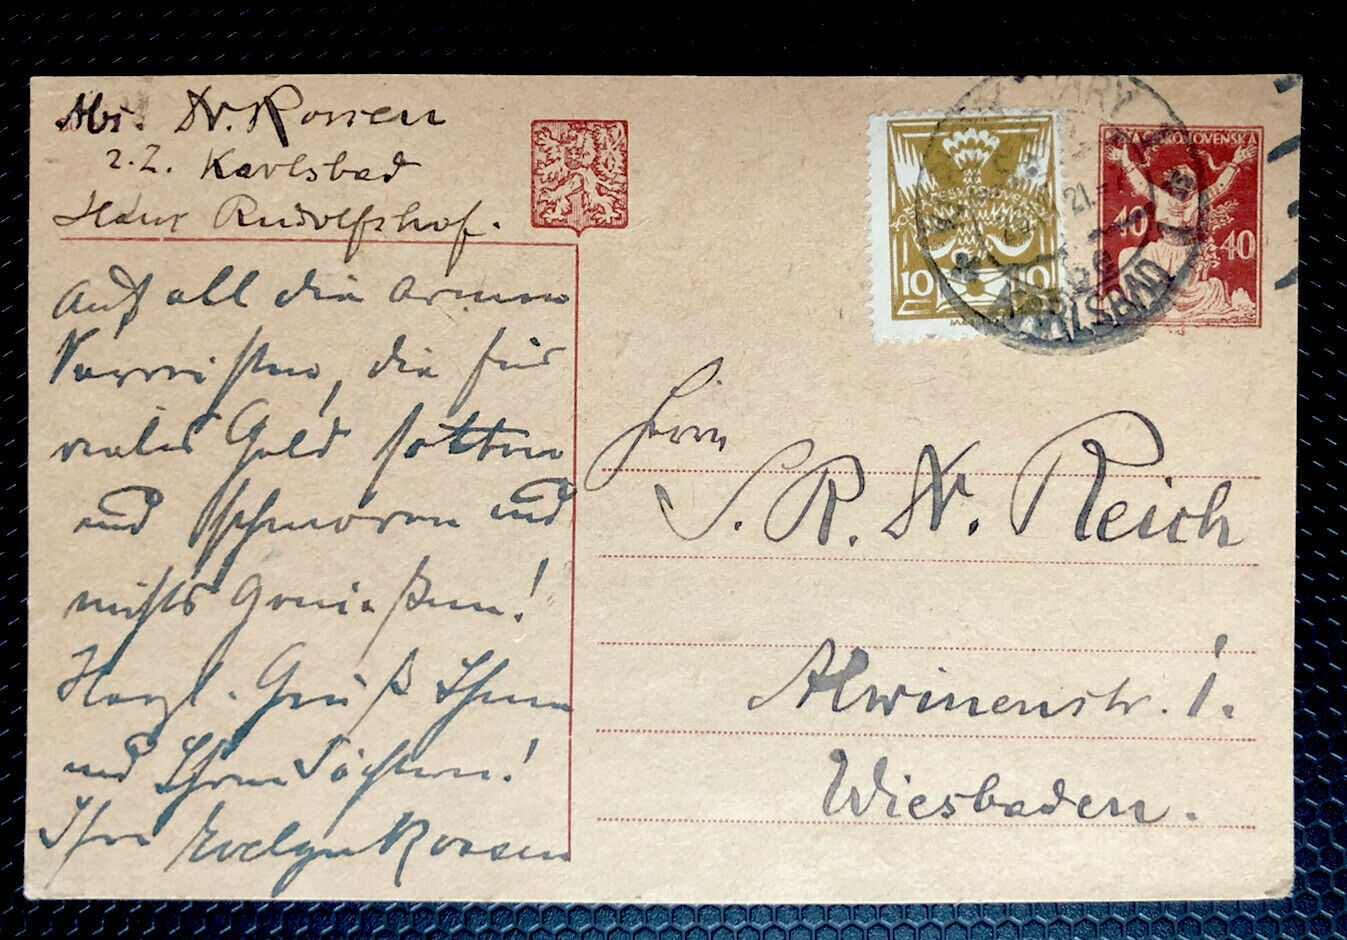 Abs. Dr. Rossen
z. Z. Karlsbad
Haus Rudolfshof.
Auf all die armen
die für
vieles Geld
und schmoren und
nichts Genießen!
Herzl. Gruß Ihnen
und Ihren Töchtern!
Ihre Evelyn Rossen
KARLOVY VARY
21.
KARLSBAD
10 10
ČESKOSLOVENSKÁ
40 40
Herrn
S. R. Dr. Reich
Alwinenstr. 1.
Wiesbaden.